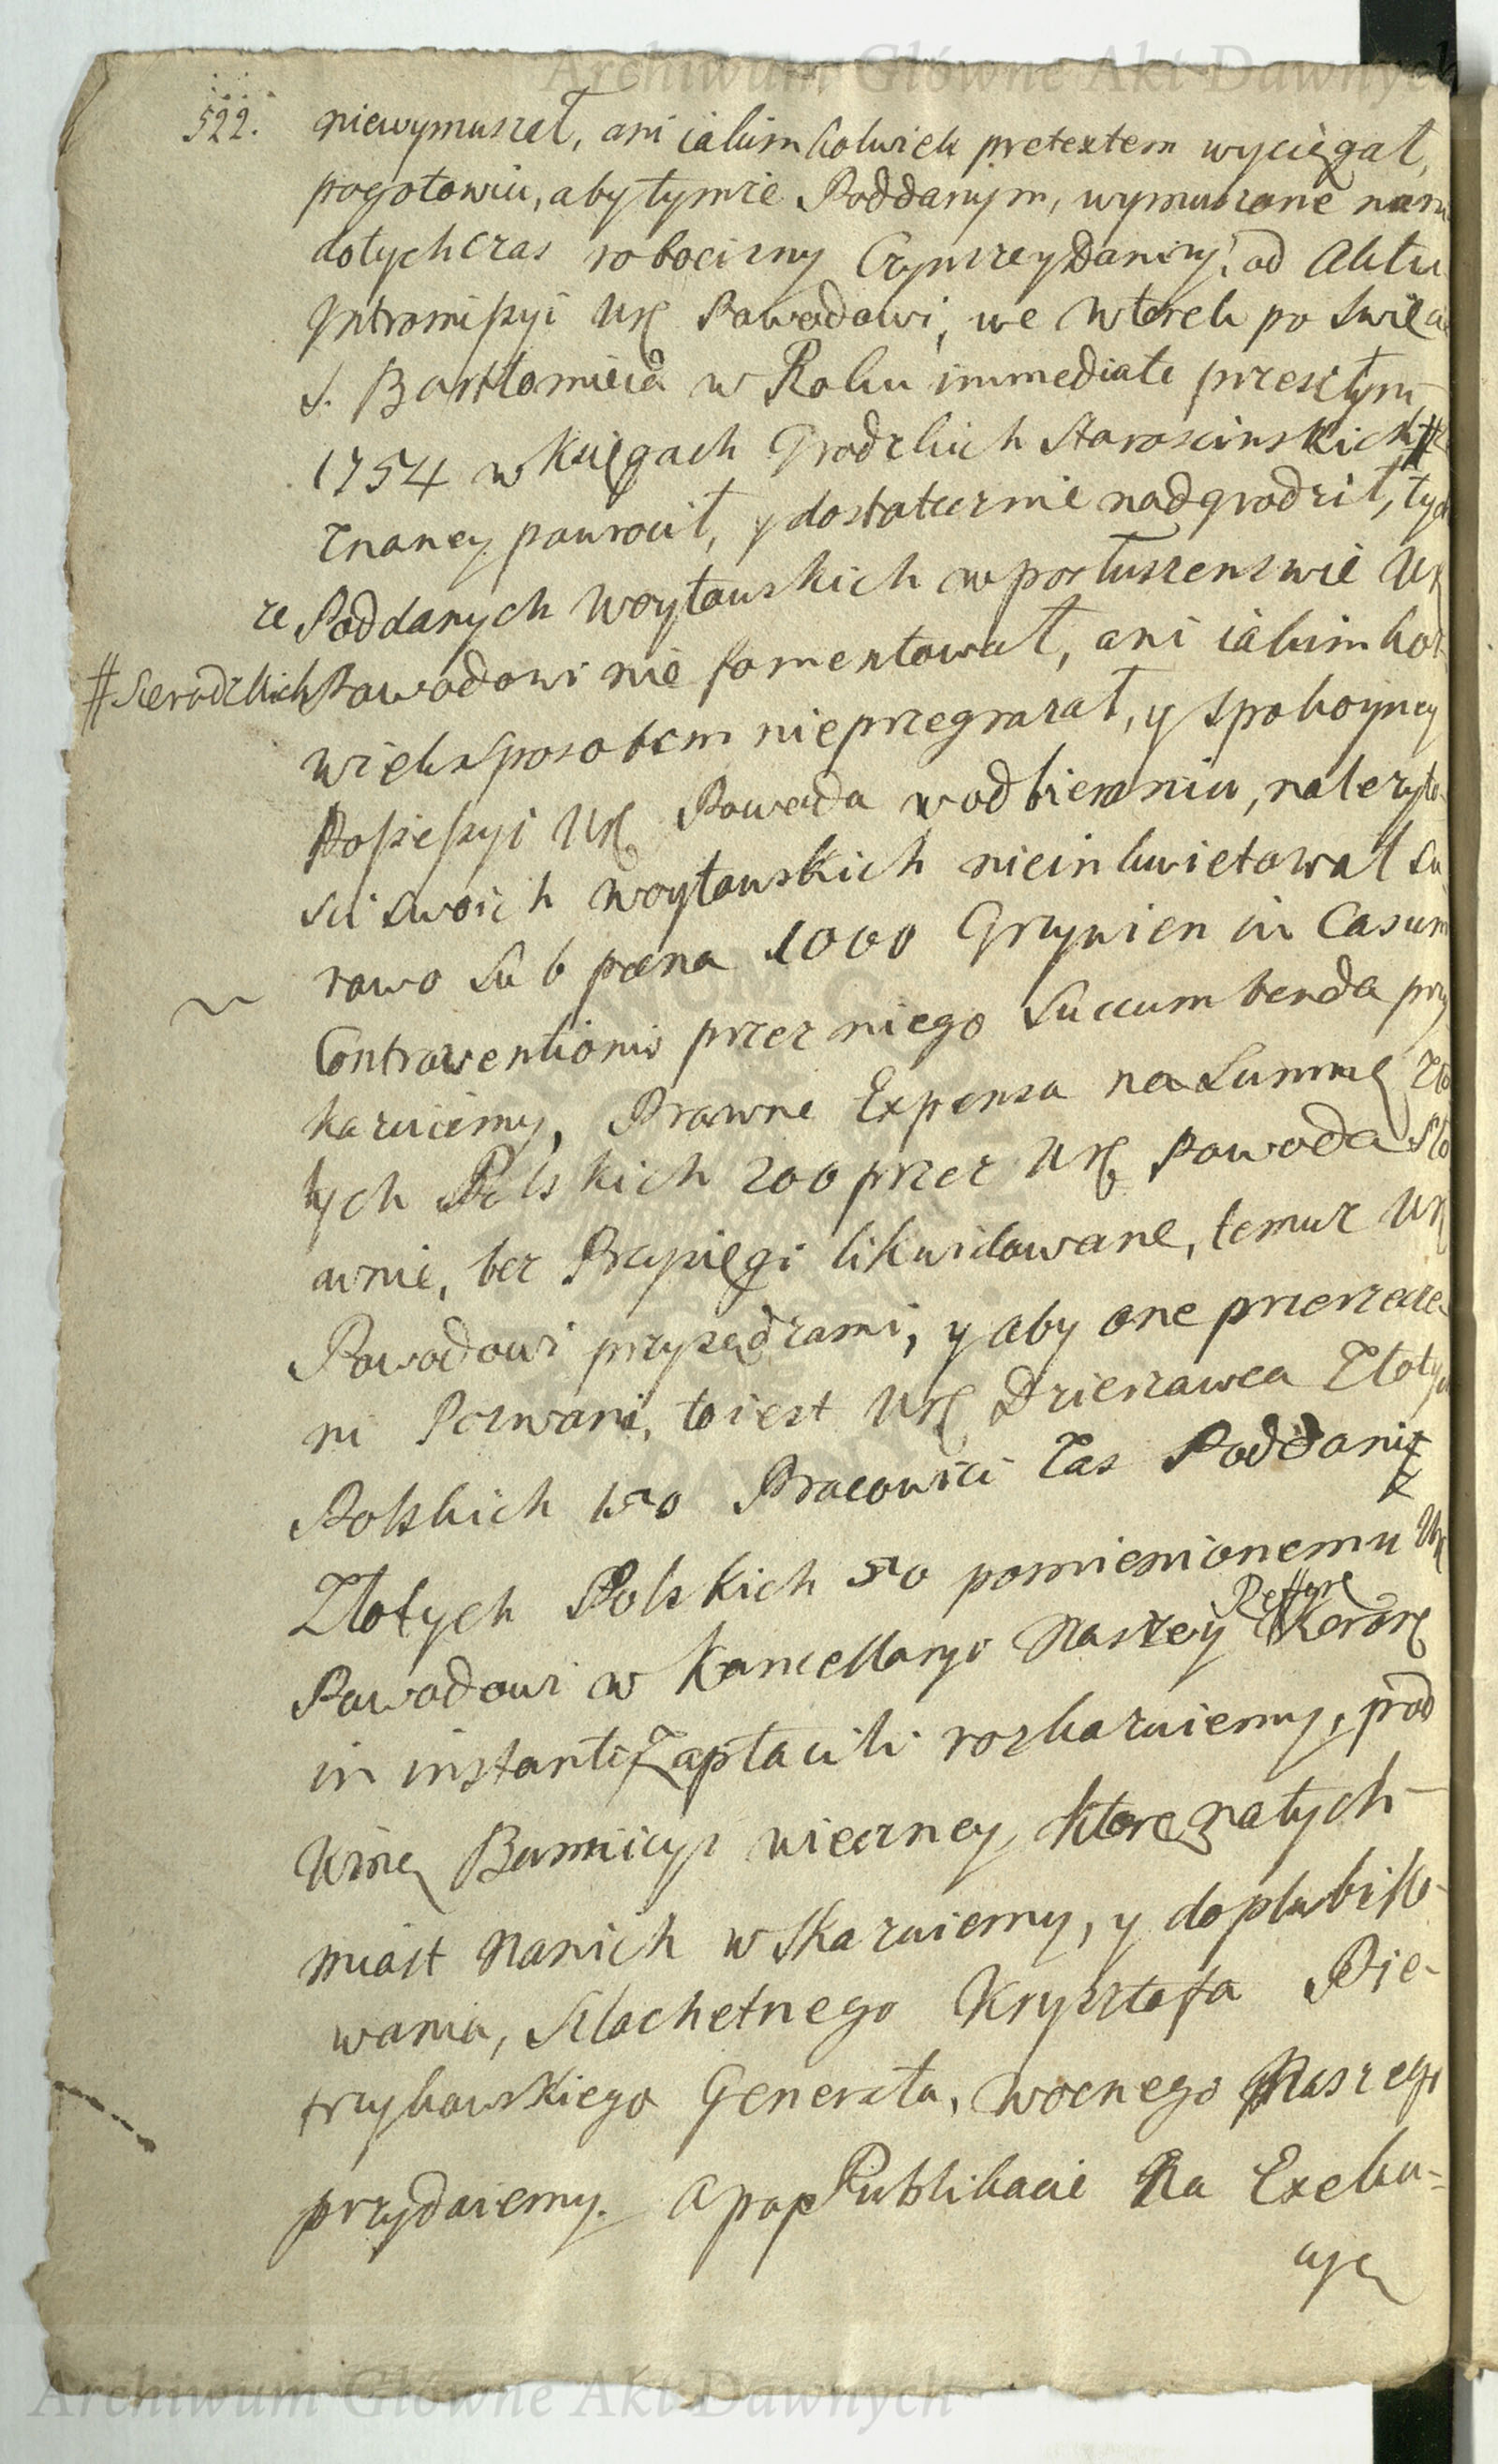 Archiwum Główne Akt Dawnych
522. niewymuszał, ani iakimkolwiek pretextem wycięgał,
pogotowiu, aby tymże Poddanym, wymuszone nam
dotychczas robocizny Czynsze y Daniny, od Aktu
Intromissyi Ur Powodowi, we Wtorek po Swięcie
S. Bartłomieia w Roku immediate przeszłym
1754 w Księgach Grodzkich Staroscinskich #
znaney powrocił, y dostatecznie nadgrodził, tych
że Poddanych Woytowskich w posłuszenswie Ur
# Sieradzkich Powodowi nie fomentował, ani iakimkol
wiek sposobem nieprzegrażał, y spokoyney
Possessyi Ur Powoda w odbieraniu, należyto
sci swoich Woytowskich nieinkwietował su
rowo sub pæna 1000 Grzywien in Casum
Contraventionis przez niego succumbenda przy
kazuiemy, Prawne Expensa na Summę Zło
tych Polskich 200 przez Ur Powoda sło
wnie, bez Przysięgi likwidowane, temuz Ur
Powodowi przysądzami, y aby one przerzecze
ni Pozwani, to iest Ur Dzierzawca Złotych
Polskich 150 Pracowici zas Poddani
Złotych Polskich 50 pomienionemu Ur
Powodowi w Kancellaryi Naszey
in instanti zapłacili rozkazuiemy, pod
Winą Bannicyi wieczney, ktorę natych-
miast nanich wskazuiemy, y do publiko-
wania, Szlachetnego Krysztofa Pie-
trzykowskiego Generała, Woznego Naszego
przydaiemy. A po Publikacie Na Exeku-
cyą
Archiwum Główne Akt Dawnych